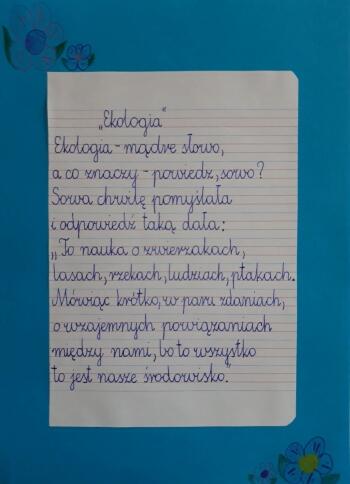 „Ekologia”
Ekologia - mądre słowo,
a co znaczy - powiedz, sowo?
Sowa chwilę pomyślała
i odpowiedź taką dała:
„To nauka o zwierzakach,
lasach, rzekach, ludziach, ptakach.
Mówiąc krótko, w paru zdaniach,
o wzajemnych powiązaniach
między nami, bo to wszystko
to jest nasze środowisko.”